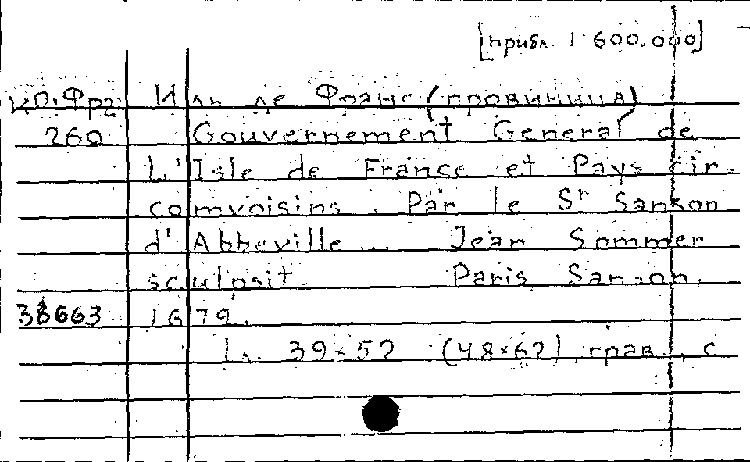 [прибл. 1:600.000]
КО.Фр2 Иль де Франс (провинция)
260 Gouvernement General de
L'Isle de France et Pays cir-
comvoisins. Par le Sr Sanson
d'Abbeville... Jean Sommer
sculpsit. Paris Sanson.
38663 1679.
1 л. 39×52 (48×62) грав., с